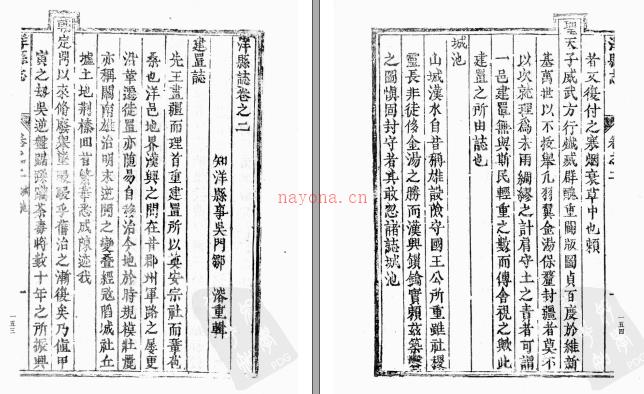 洋縣誌卷之二
知洋縣事吳門鄒 溶重輯
建置誌
先王畫疆而理首重建置所以奠安宗社而靈
桑也洋邑地界漢興之間在昔郡州軍路之屢更
沿革遞徙置亦隨易自移治今地於時規模壯麗
亦稱關南雄治明末逆闖之變疊經寇陷城社丘
墟土地荆榛回首繁華悉成陳迹我
朝定鼎以來脩廢舉墜駸駸乎舊治之漸復矣乃值甲
寅之刼吳逆盤踞荼毒將數十年之所振興
一五三
者又復付之寒烟衰草中也賴
聖天子威武方行殲厥群醜重關版圖貞百度於維新
基萬世以不拔舉凡羽翼金湯保釐封疆者莫不
以次就理爲未雨綢繆之計肩守土之責者可謂
一邑建置無與斯民輕重之數而傳舍視之歟此
建置之所由誌也
城池
山城漢水自昔稱雄設險守國王公所重雖社稷
靈長非徒侈金湯之勝而漢興鎖鑰實賴兹築鑿
之圖愼固封守者其敢忽諸誌城池
洋縣誌
卷之二
一五四
nayona.cn
PDG